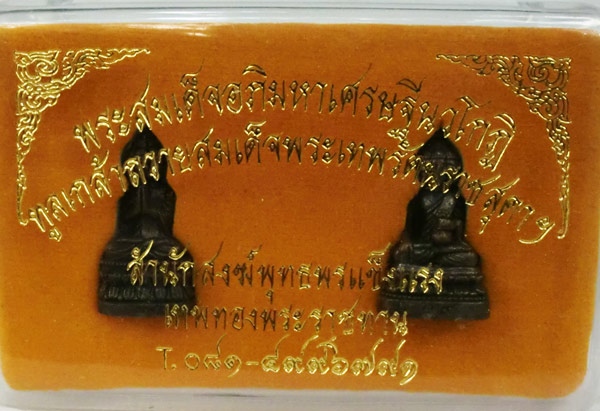 พระสมเด็จอภิมหาเศรษฐีนวโกฏิ
ทูลเกล้าถวายสมเด็จพระเทพรัตนราชสุดาฯ
สำนักสงฆ์พุทธพรแข็งแรง
เทพทองพระราชทาน
T. ๐๘๑-๔๙๙๖๗๙๑